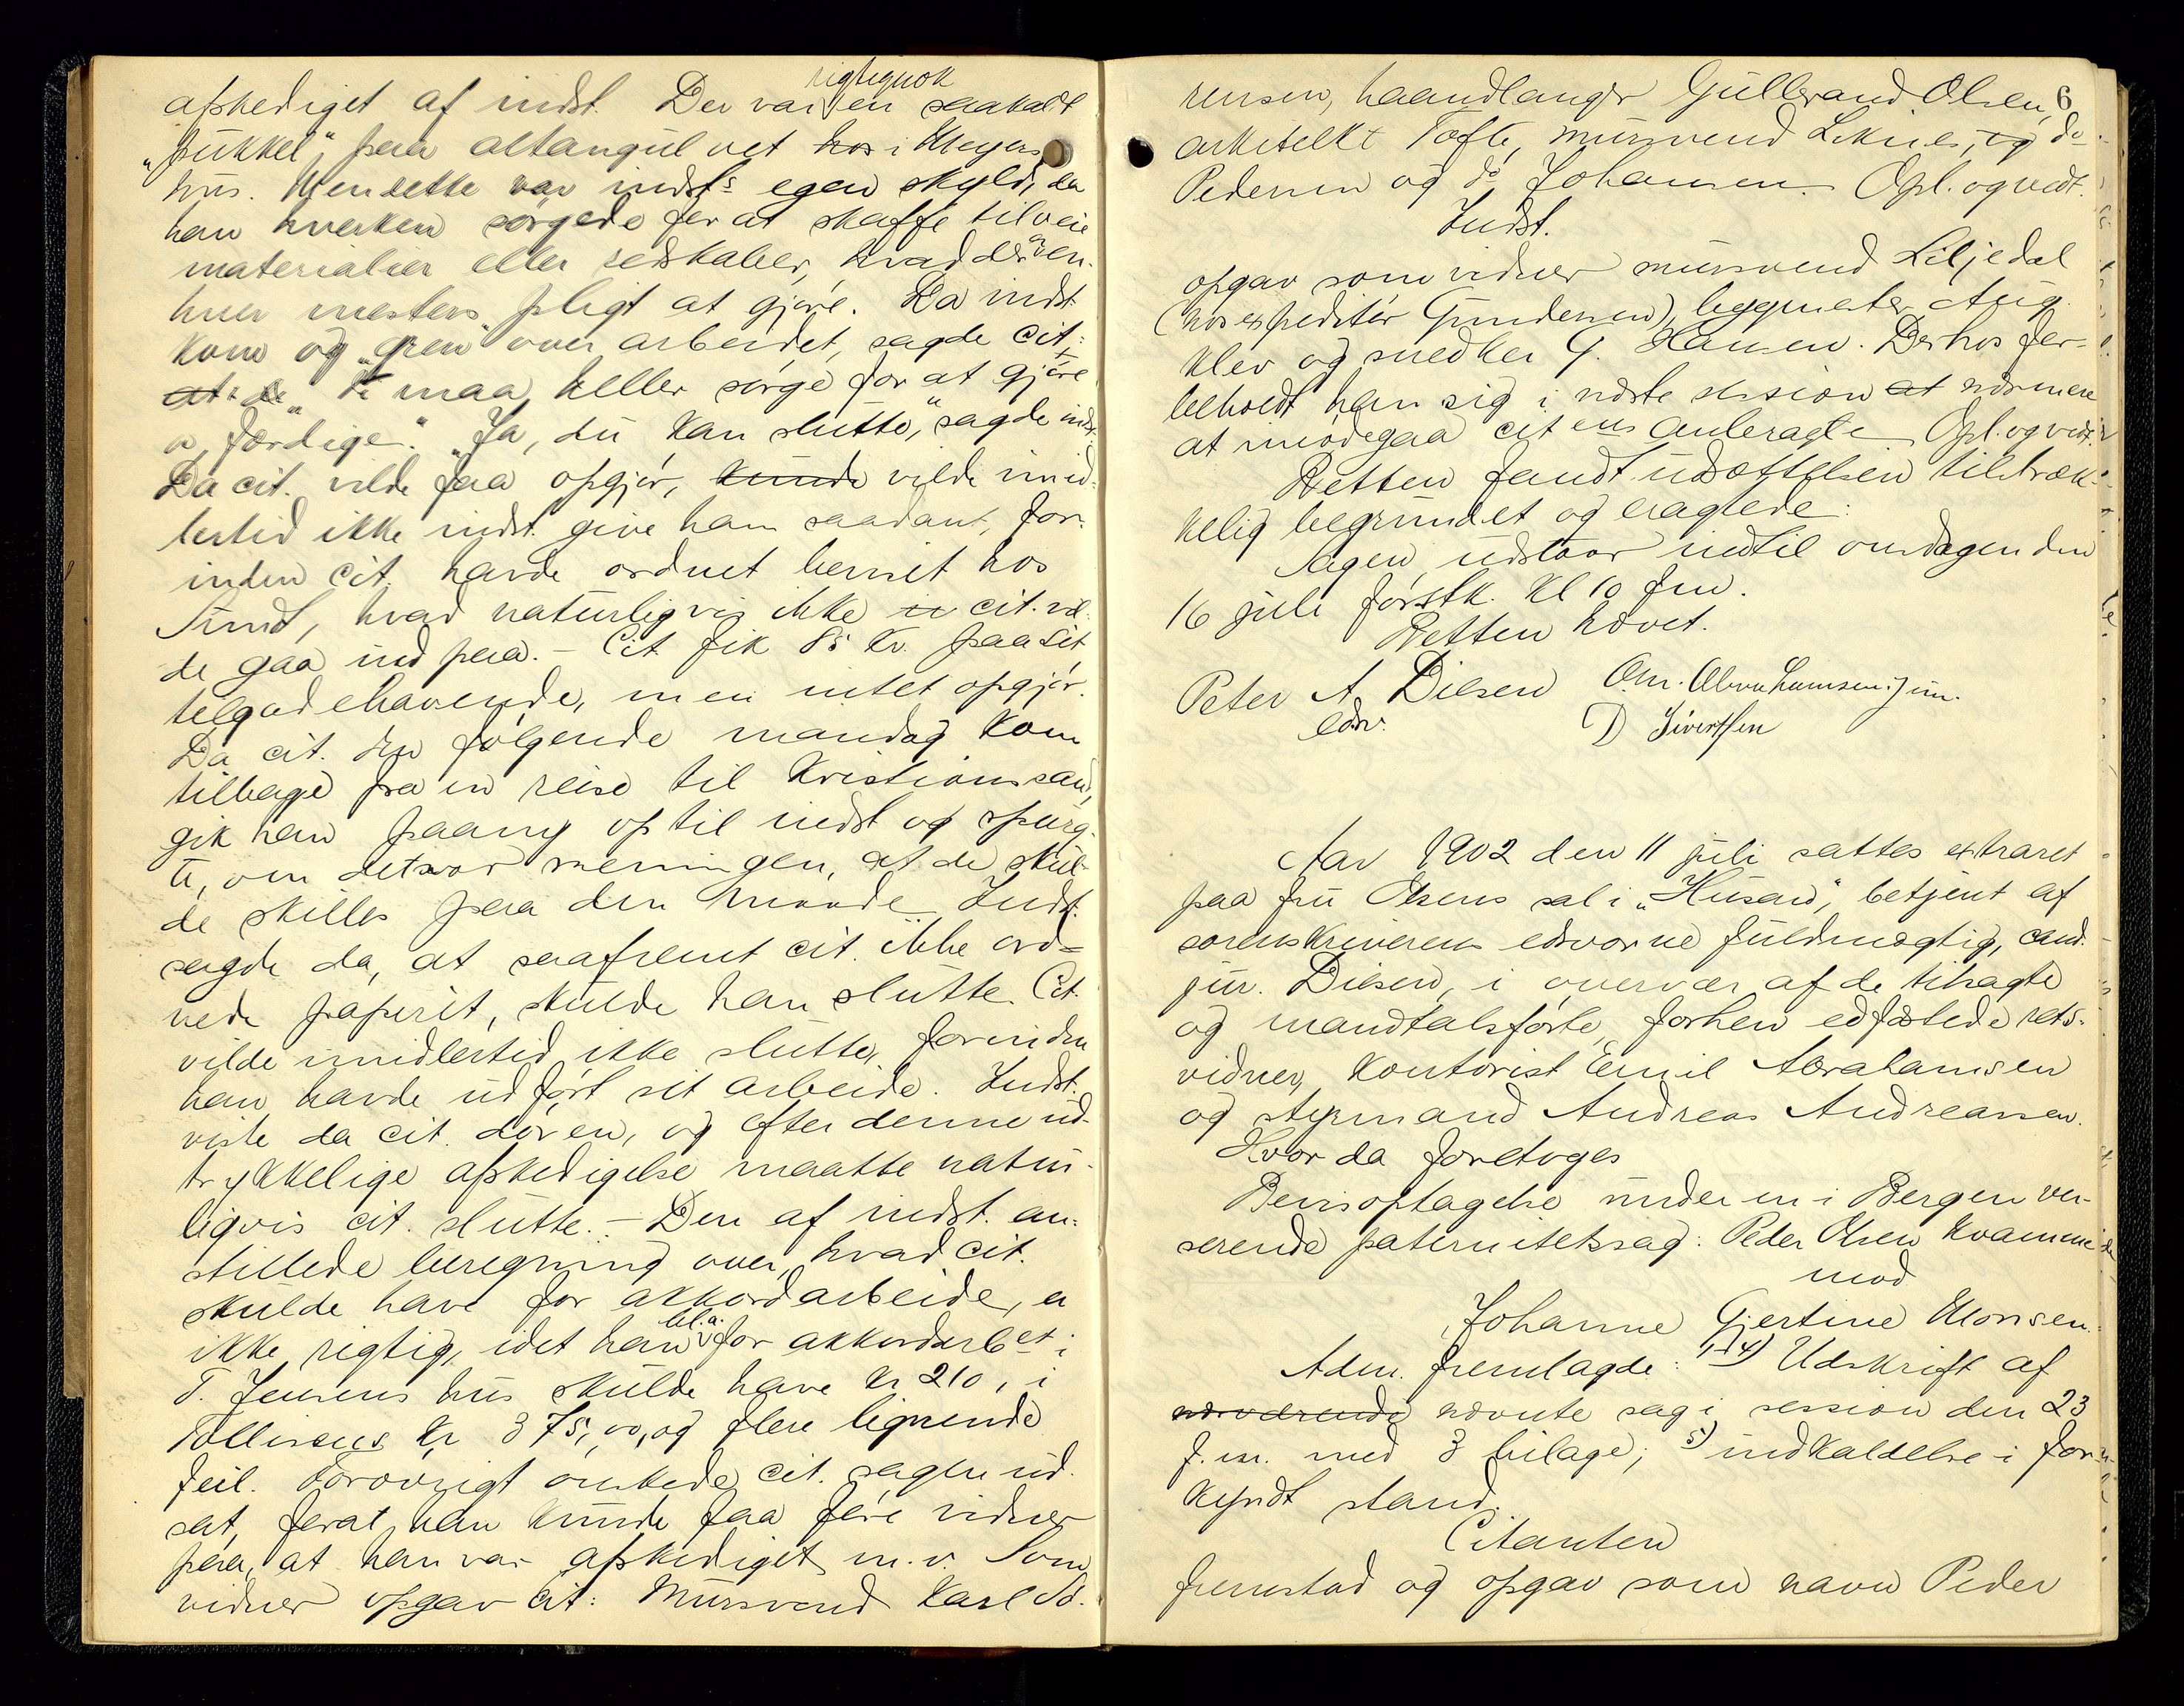 afskediget af indst. Der var rigtignok en saakaldt
"pukkel" paa altangulvet hos i Meyers
hus. Men dette var indst.s egen skyld, da
han hverken sørgede for at skaffe tilveie
materialier eller redskaber, hvad det er en-
hver mesters pligt at gjøre. Da indst.
kom og "gren" over arbeidet, sagde cit.:
at de "Vi maa heller sørge for at gjøre
os færdige." "Ja, du kan slutte," sagde indst.
Da cit. vilde faa opgjør, kunde vilde imid-
lertid ikke indst. give ham saadant, for-
inden cit. havde ordnet beviset hos
Sund, hvad naturligvis ikke cit. vil-
de gaa ind paa. – Cit. fik 85 kr. paa sit
tilgodehavende, men intet opgjør.
Da cit. den følgende mandag kom
tilbage fra en reise til Kristianssand,
gik han paany op til indst. og spurg-
te, om det var meningen, at de skul-
de skilles paa den maade. Indst.
sagde da, at saafremt cit. ikke ord-
nede papiret, skulde han slutte. Cit.
vilde imidlertid ikke slutte, forinden
han havde udført sit arbeide. Indst.
viste da cit. døren, og efter denne ud-
trykkelige afskedigelse maatte natur-
ligvis cit. slutte. – Den af indst. an-
stillede beregning over, hvad cit.
skulde have for akkordarbeide, er
ikke rigtig, idet han bl.a. for akkordarbet i
T. Jensens hus skulde have kr 210, i
Tollisens kr 375,00, og flere lignende
feil. Forøvrigt ønskede cit. sagen ud-
sat, forat han kunde faa føre vidner
paa, at han var afskediget m.v. Som
vidner opgav cit.: Mursvend Karl Sø-
6
rensen, haandlanger Gullerand Olsen,
arkitekt Tofte, mursvend Leknes, og do
Pedersen og do Johansen. Opl. og vedt.
Indst.
opgav som vidner mursvend Liljedal
(hos expeditør Gundersen), bygmester Aug.
Klev og snedker G. Hansen. Derhos for-
beholdt han sig i næste session at nærmere
at imødegaa citens anbragte. Opl. og vedt.
Retten fandt udsættelsen tilstræk-
kelig begrundet og eragtede:
Sagen udstaar indtil onsdagen den
16 juli førstk. kl 10 fm.
Retten hævet.
Peter A. Diesen Em. Abrahamsen jun.
edsv. D Sivertsen
Aar 1902 den 11 juli sattes extraret
paa fru Olsens sal i "Husan", betjent af
sorenskriverens edsvorne fuldmægtig, cand.
jur. Diesen, i overvær af de tilsagte
og mandtalsførte, forhen edfæstede rets-
vidner, kontorist Emil Abrahamsen
og styrmand Andreas Andreassen.
Hvorda foretoges
Bevisoptagelse under en i Bergen ver-
serende paternitetssag: Peder Olsen Kvamme
mod
Johanne Gjertine Monsen.
Adm. fremlagde: 1-4) Udskrift af
nærværende nævnte sag i session den 23
f.m. med 3 bilage; 5) indkaldelse i for-
kyndt stand.
Citanten
fremstod og opgav som navn Peder